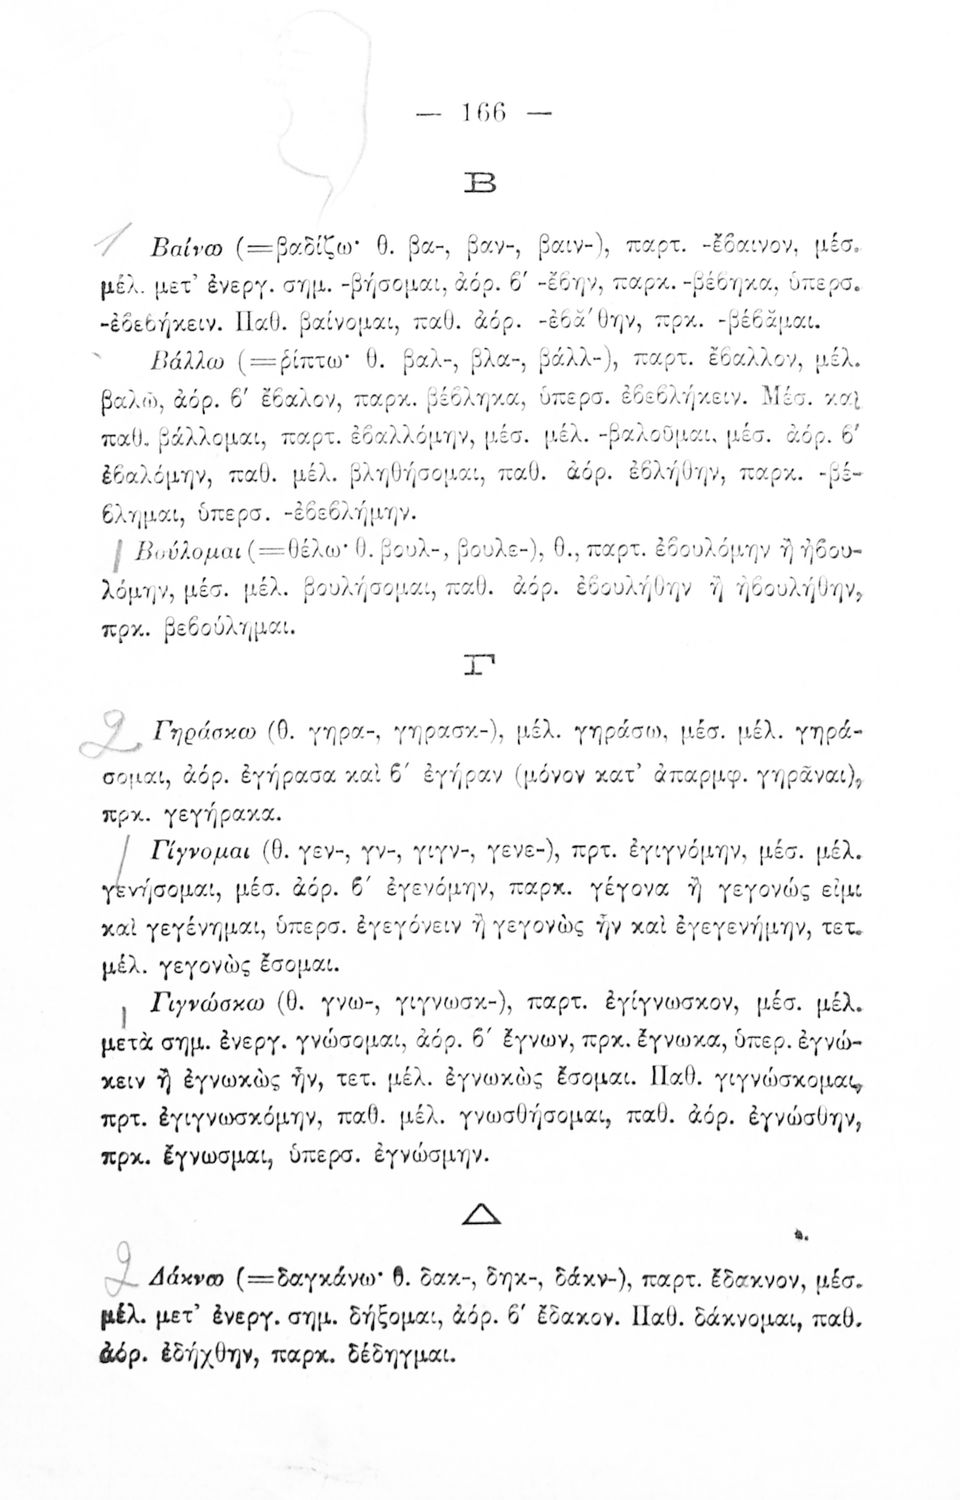 — 166 —
Β
1 Βαίνω (=βαδίζω· θ. βα-, βαν-, βαιν-), παρτ. -ἔβαινον, μέσ.
μέλ. μετ’ ἐνεργ. σημ. -βήσομαι, ἀόρ. β′ -ἔβην, παρκ. -βέβηκα, ὑπερσ.
-ἐβεβήκειν. Παθ. βαίνομαι, παθ. ἀόρ. -ἐβᾰ́θην, πρκ. -βέβᾰμαι.
Βάλλω (=ῥίπτω· θ. βαλ-, βλα-, βάλλ-), παρτ. ἔβαλλον, μέλ.
βαλῶ, ἀόρ. β′ ἔβαλον, παρκ. βέβληκα, ὑπερσ. ἐβεβλήκειν. Μέσ. καὶ
παθ. βάλλομαι, παρτ. ἐβαλλόμην, μέσ. μέλ. -βαλοῦμαι, μέσ. ἀόρ. β′
ἐβαλόμην, παθ. μέλ. βληθήσομαι, παθ. ἀόρ. ἐβλήθην, παρκ. -βέ-
βλημαι, ὑπερσ. -ἐβεβλήμην.
Βούλομαι (=θέλω· θ. βουλ-, βουλε-), θ., παρτ. ἐβουλόμην ἢ ἠβου-
λόμην, μέσ. μέλ. βουλήσομαι, παθ. ἀόρ. ἐβουλήθην ἢ ἠβουλήθην,
πρκ. βεβούλημαι.
Γ
2 Γηράσκω (θ. γηρα-, γηρασκ-), μέλ. γηράσω, μέσ. μέλ. γηρά-
σομαι, ἀόρ. ἐγήρασα καὶ β′ ἐγήραν (μόνον κατ’ ἀπαρμφ. γηρᾶναι),
πρκ. γεγήρακα.
Γίγνομαι (θ. γεν-, γν-, γιγν-, γενε-), πρτ. ἐγιγνόμην, μέσ. μέλ.
γενήσομαι, μέσ. ἀόρ. β′ ἐγενόμην, παρκ. γέγονα ἢ γεγονώς εἰμι
καὶ γεγένημαι, ὑπερσ. ἐγεγόνειν ἢ γεγονὼς ἦν καὶ ἐγεγενήμην, τετ.
μέλ. γεγονὼς ἔσομαι.
Γιγνώσκω (θ. γνω-, γιγνωσκ-), παρτ. ἐγίγνωσκον, μέσ. μέλ.
μετὰ σημ. ἐνεργ. γνώσομαι, ἀόρ. β′ ἔγνων, πρκ. ἔγνωκα, ὑπερ. ἐγνώ-
κειν ἢ ἐγνωκὼς ἦν, τετ. μέλ. ἐγνωκὼς ἔσομαι. Παθ. γιγνώσκομαι,
πρτ. ἐγιγνωσκόμην, παθ. μέλ. γνωσθήσομαι, παθ. ἀόρ. ἐγνώσθην,
πρκ. ἔγνωσμαι, ὑπερσ. ἐγνώσμην.
Δ
2 Δάκνω (=δαγκάνω· θ. δακ-, δηκ-, δάκν-), παρτ. ἔδακνον, μέσ.
μέλ. μετ’ ἐνεργ. σημ. δήξομαι, ἀόρ. β′ ἔδακον. Παθ. δάκνομαι, παθ.
ἀόρ. ἐδήχθην, παρκ. δέδηγμαι.